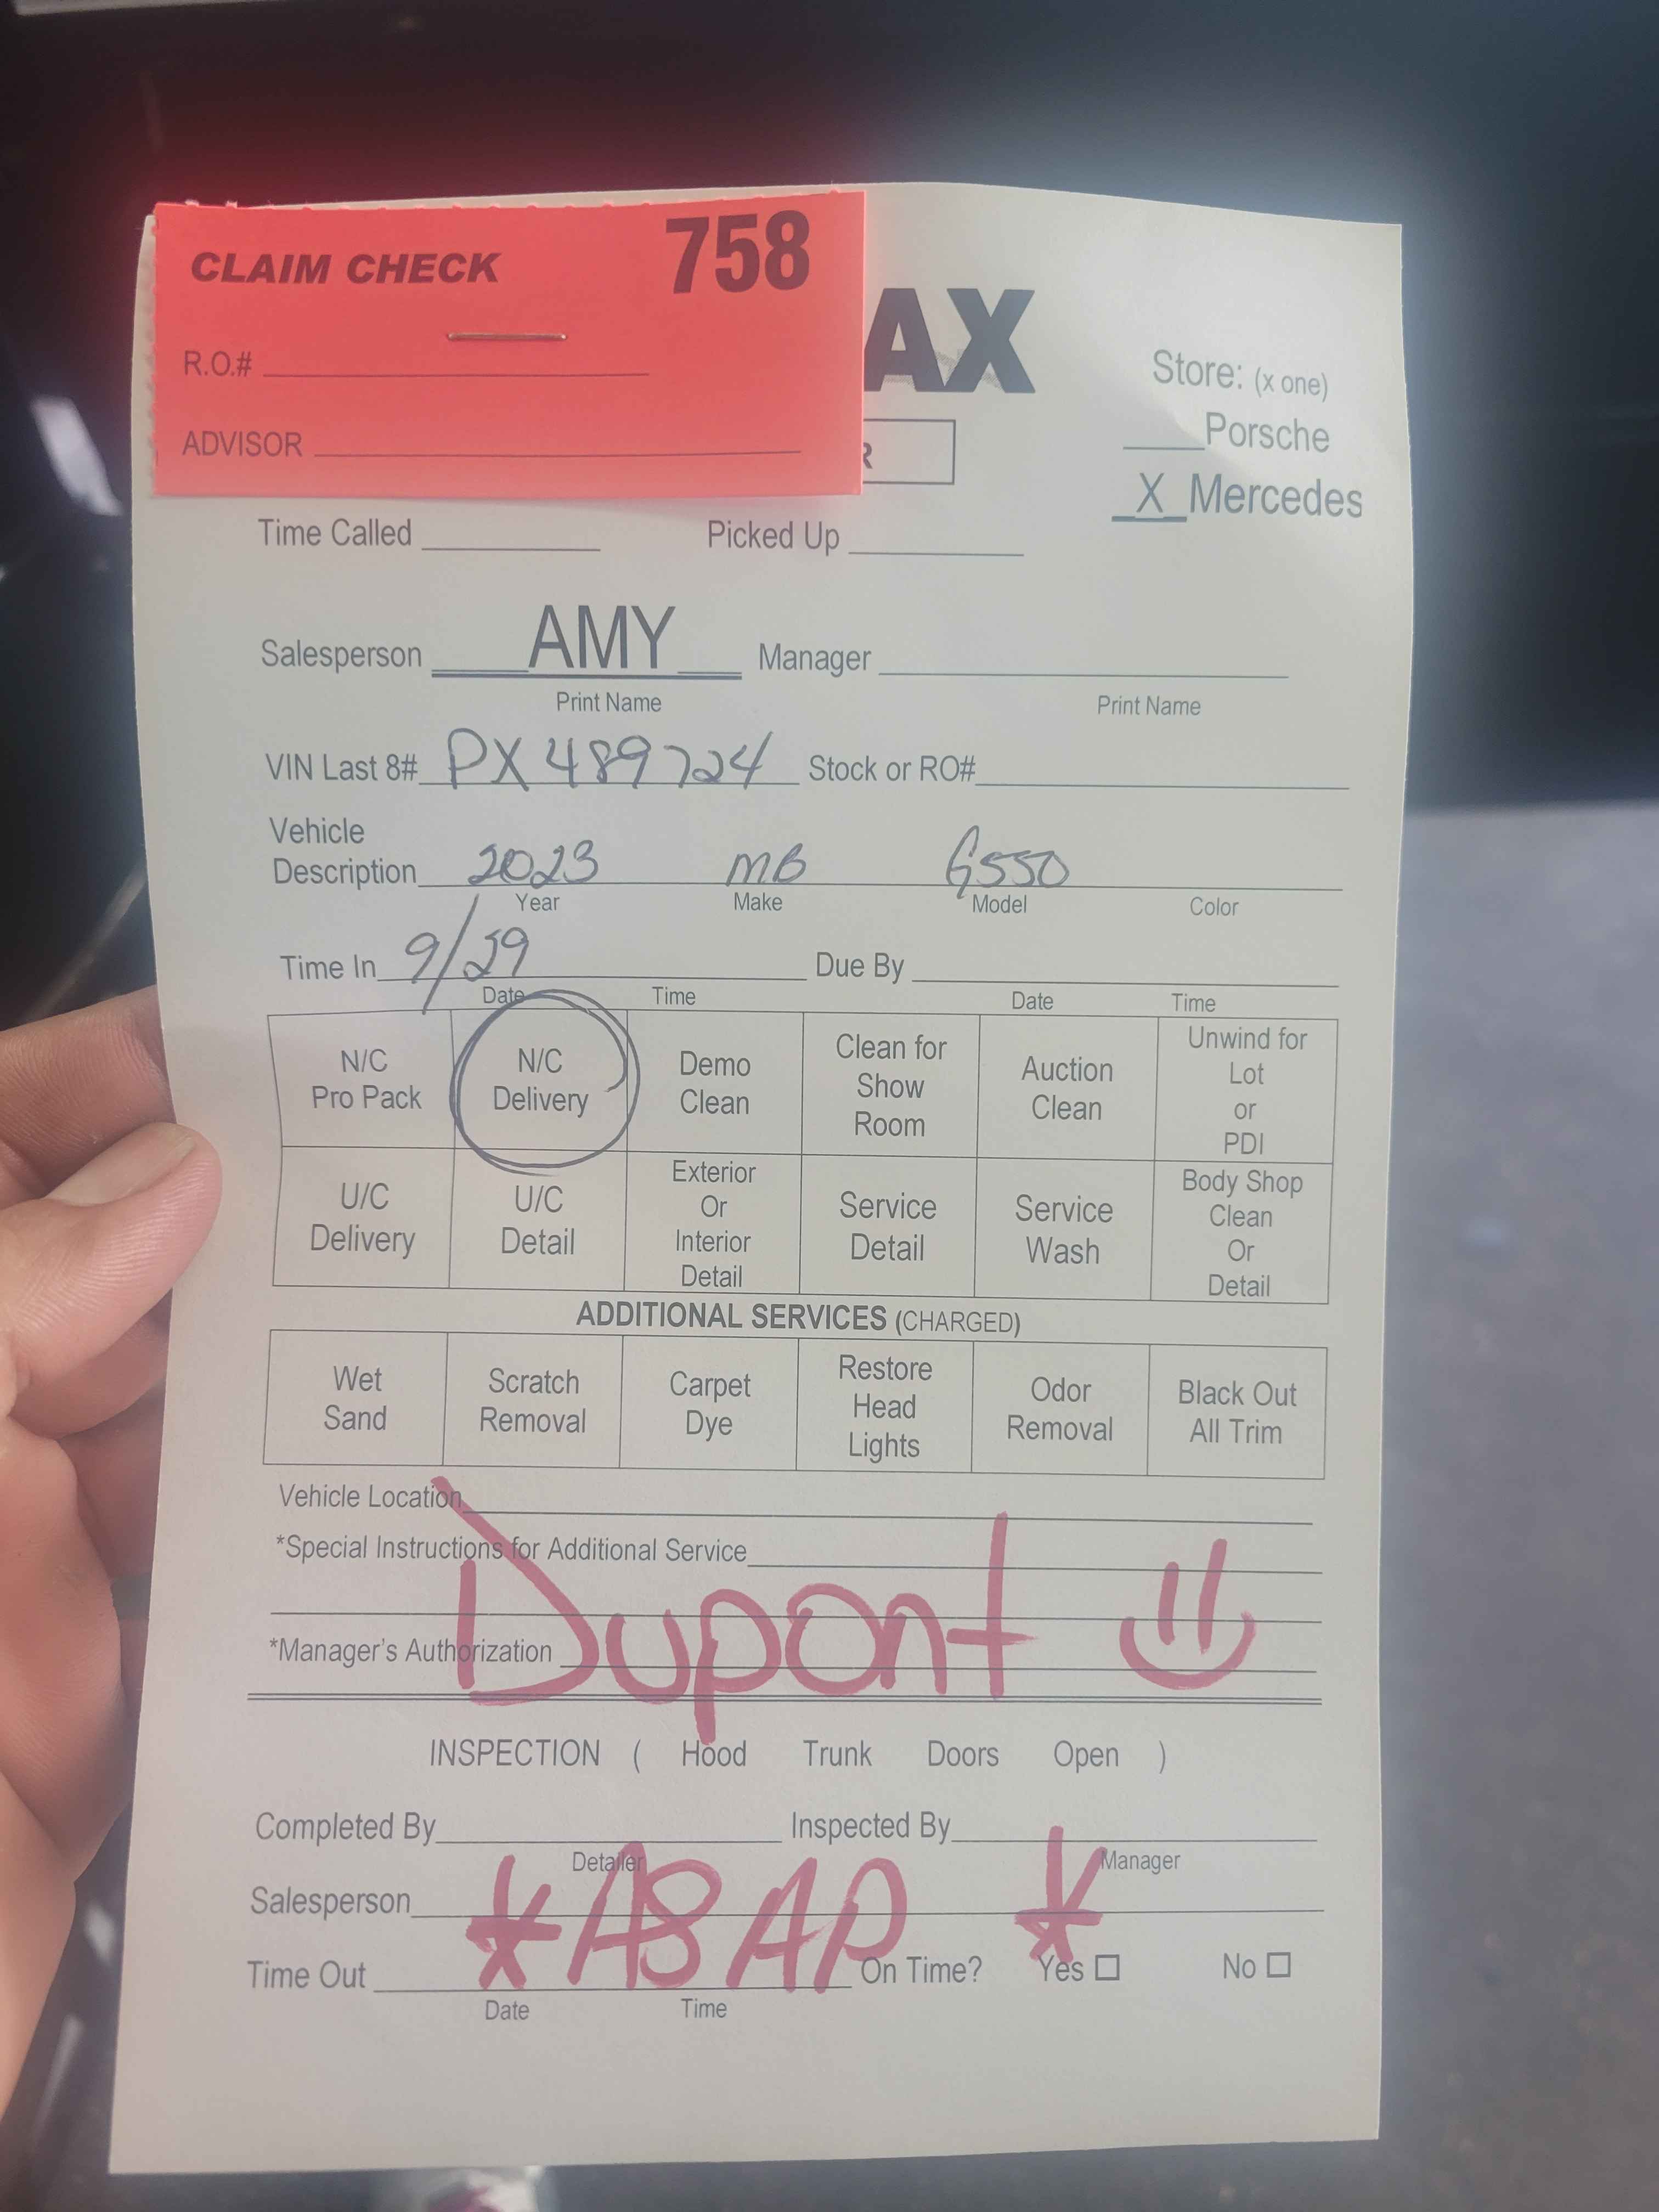 CLAIM CHECK 758
R.O.#
ADVISOR
AX
R
Store: (x one)
Porsche
X Mercedes
Time Called Picked Up
Salesperson AMY Manager
Print Name Print Name
VIN Last 8# PX489724 Stock or RO#
Vehicle
Description 2023 MB G550
Year Make Model Color
Time In 9/29 Due By
Date Time Date Time
N/C
Pro Pack
N/C
Delivery
Demo
Clean
Clean for
Show
Room
Auction
Clean
Unwind for
Lot
or
PDI
U/C
Delivery
U/C
Detail
Exterior
Or
Interior
Detail
Service
Detail
Service
Wash
Body Shop
Clean
Or
Detail
ADDITIONAL SERVICES (CHARGED)
Wet
Sand
Scratch
Removal
Carpet
Dye
Restore
Head
Lights
Odor
Removal
Black Out
All Trim
Vehicle Location
*Special Instructions for Additional Service
Dupont
*Manager's Authorization
INSPECTION ( Hood Trunk Doors Open )
Completed By Inspected By
Detailer Manager
Salesperson
*ASAP*
Time Out On Time? Yes No
Date Time